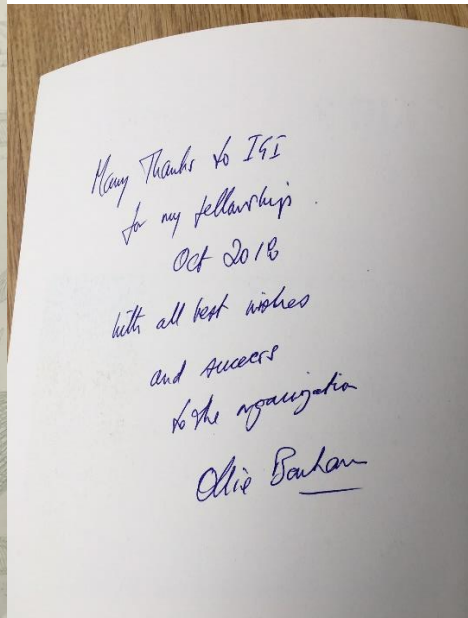 Many Thanks to IGI
for my fellowship.
Oct 2018
with all best wishes
and success
to the organization
Ollie